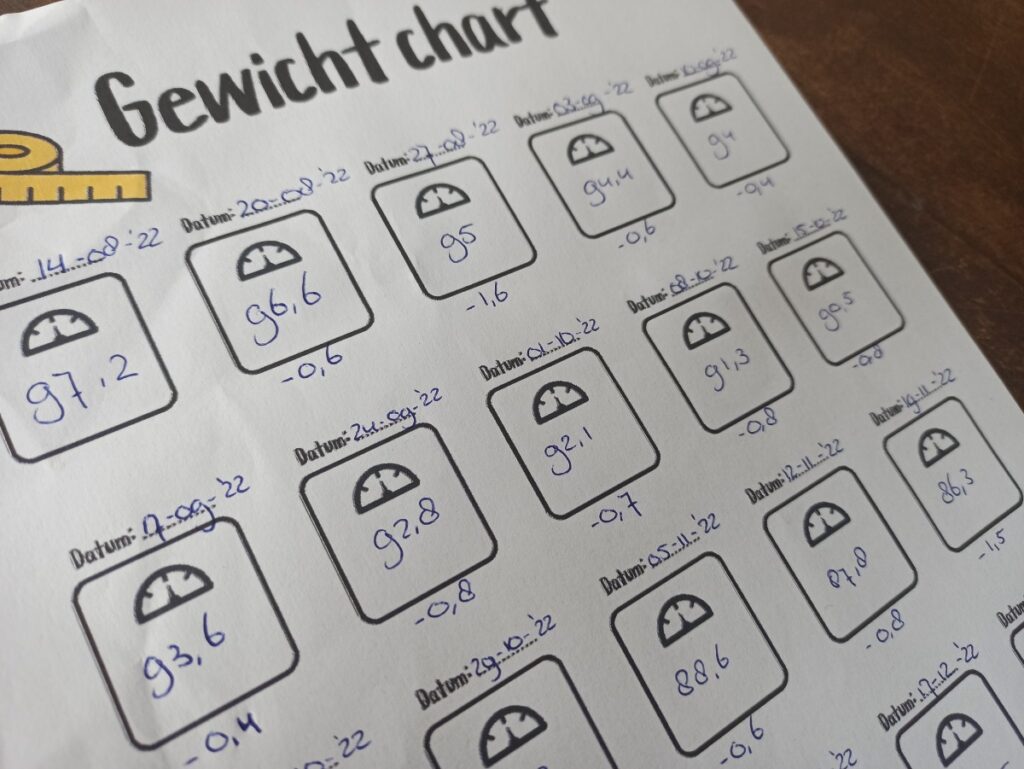 Gewicht chart
14-08-'22
97,2
Datum: 20-08-'22
96,6
-0,6
Datum: 27-08-'22
95
-1,6
Datum: 03-09-'22
94,4
-0,6
Datum: 10-09-'22
94
-0,4
Datum: 17-09-'22
93,6
-0,4
Datum: 24-09-'22
92,8
-0,8
Datum: 01-10-'22
92,1
-0,7
Datum: 08-10-'22
91,3
-0,8
Datum: 15-10-'22
90,5
-0,8
-'22
Datum: 29-10-'22
Datum: 05-11-'22
88,6
-0,6
Datum: 12-11-'22
87,8
-0,8
19-11-'22
86,3
-1,5
'22
Datum: 17-12-'22